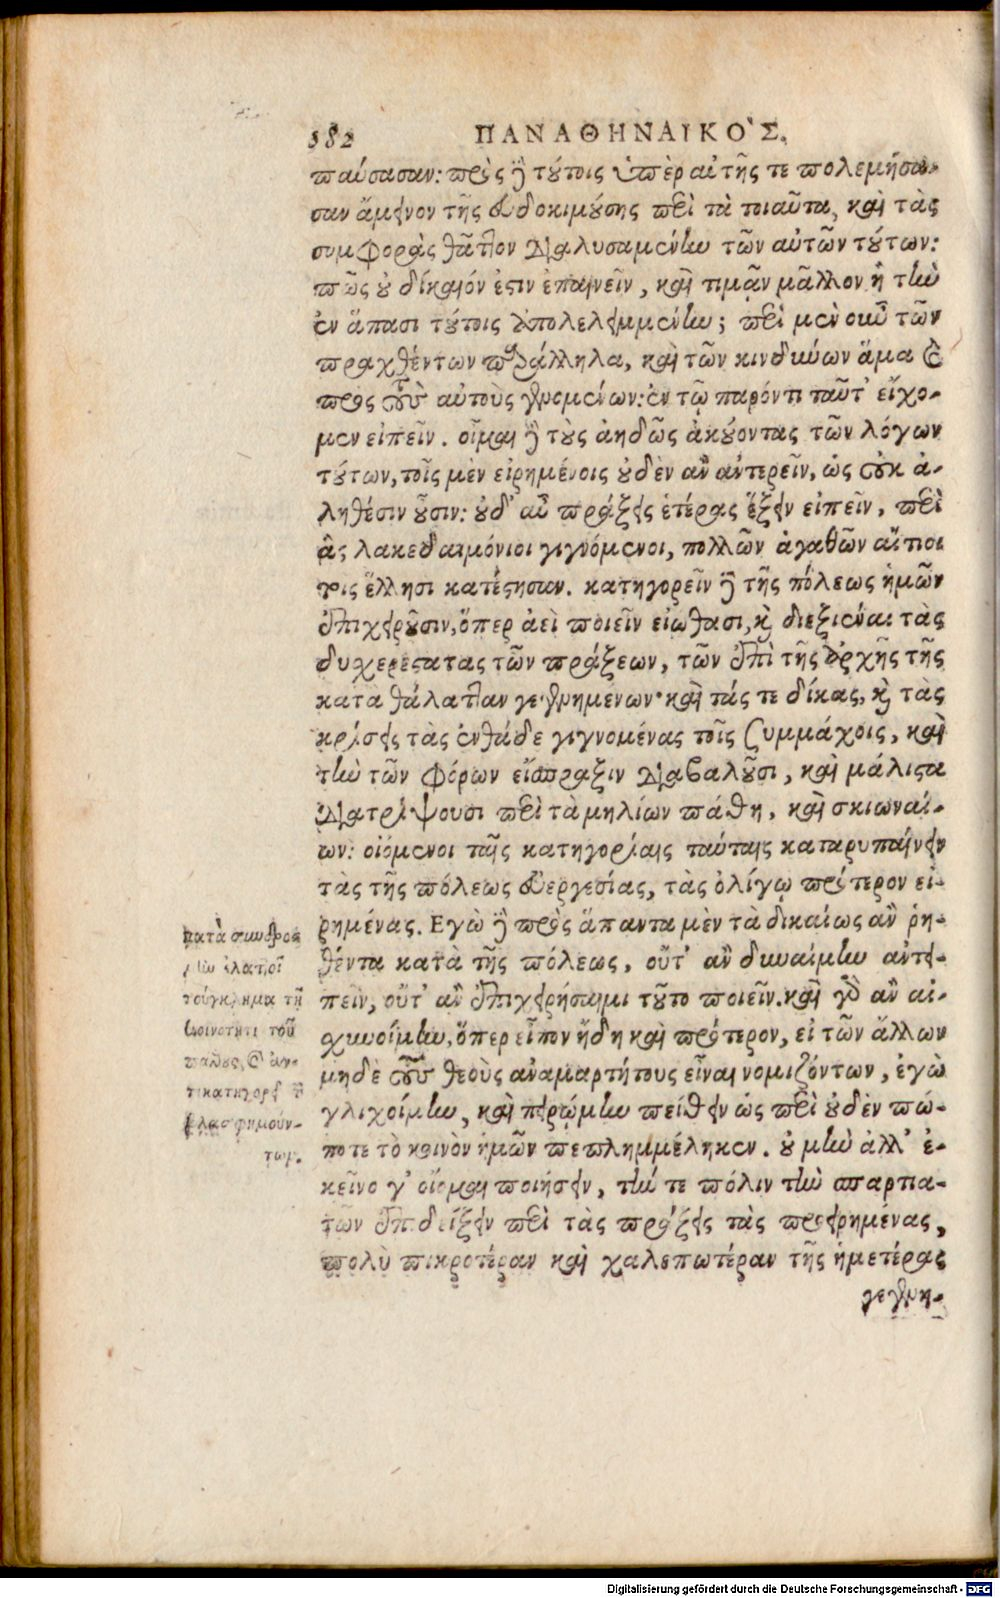 382 ΠΑΝΑΘΗΝΑΙΚΟ`Σ.
παύσασαν: πρὸς δὲ τούτοις ὑπὲρ αὐτῆς τε πολεμήσα-
σαν ἄμεινον τῆς εὐδοκιμούσης περὶ τὰ τοιαῦτα, καὶ τὰς
συμφορὰς θᾶττον διαλυσαμένην τῶν αὐτῶν τούτων:
πῶς οὐ δίκαιόν ἐστιν ἐπαινεῖν, καὶ τιμᾶν μᾶλλον ἢ τὴν
ἐν ἅπασι τούτοις ἀπολελειμμένην; περὶ μὲν οὖν τῶν
πραχθέντων παράλληλα, καὶ τῶν κινδύνων ἅμα καὶ
πρὸς τοὺς αὐτοὺς γενομένων: ἐν τῷ παρόντι ταῦτ' εἴχο-
μεν εἰπεῖν. οἶμαι δὲ τοὺς ἀηδῶς ἀκούοντας τῶν λόγων
τούτων, τοῖς μὲν εἰρημένοις οὐδὲν ἂν ἀντερεῖν, ὡς οὐκ ἀ-
ληθέσιν οὖσιν: οὐδ' αὖ πράξεις ἑτέρας ἕξειν εἰπεῖν, περὶ
ἃς λακεδαιμόνιοι γιγνόμενοι, πολλῶν ἀγαθῶν αἴτιοι
τοῖς ἕλλησι κατέστησαν. κατηγορεῖν δὲ τῆς πόλεως ἡμῶν
ἐπιχειροῦσιν, ὅπερ ἀεὶ ποιεῖν εἰώθασι, καὶ διεξιέναι τὰς
δυχερεστατας τῶν πράξεων, τῶν ἐπὶ τῆς ἀρχῆς τῆς
κατὰ θάλατταν γεγενημένων· καὶ τάς τε δίκας, καὶ τὰς
κρίσεις τὰς ἐνθάδε γιγνομένας τοῖς ξυμμάχοις, καὶ
τὴν τῶν φόρων εἴσπραξιν διαβαλοῦσι, καὶ μάλιστα
διατρίψουσι περὶ τὰ μηλίων πάθη, καὶ σκιωναί-
ων: οἰόμενοι ταῖς κατηγορίαις ταύταις καταρυπαίνειν
τὰς τῆς πόλεως εὐεργεσίας, τὰς ὀλίγῳ πρότερον εἰ-
ρημένας. Εγὼ δὲ πρὸς ἅπαντα μὲν τὰ δικαίως ἂν ῥη-
θέντα κατὰ τῆς πόλεως, οὔτ' ἂν δυναίμην ἀντει-
πεῖν, οὔτ' ἂν ἐπιχειρήσαιμι τοῦτο ποιεῖν. καὶ γὰρ ἂν αἰ-
σχυνοίμην, ὅπερ εἶπον ἤδη καὶ πρότερον, εἰ τῶν ἄλλων
μηδὲ τοὺς θεοὺς ἀναμαρτήτους εἶναι νομιζόντων, ἐγὼ
γλιχοίμην, καὶ πειρῴμην πείθειν ὡς περὶ οὐδὲν πώ-
ποτε τὸ κοινὸν ἡμῶν πεπλημμέληκεν. οὐ μὴν ἀλλ' ἐ-
κεῖνο γ' οἴομαι ποιήσειν, τήν τε πόλιν τὴν σπαρτια-
τῶν ἐπιδείξειν περὶ τὰς πράξεις τὰς προειρημένας,
πολὺ πικροτέραν καὶ χαλεπωτέραν τῆς ἡμετέρας
γεγενη-
κατὰ συνδρο
μὴν ἐλαττοῖ
τοὔγκλημα τῇ
κοινότητι τοῦ
πάθους, καὶ ἀν-
τικατηγορεῖ τῶν
βλασφημούν-
των.
Digitalisierung gefördert durch die Deutsche Forschungsgemeinschaft - DFG